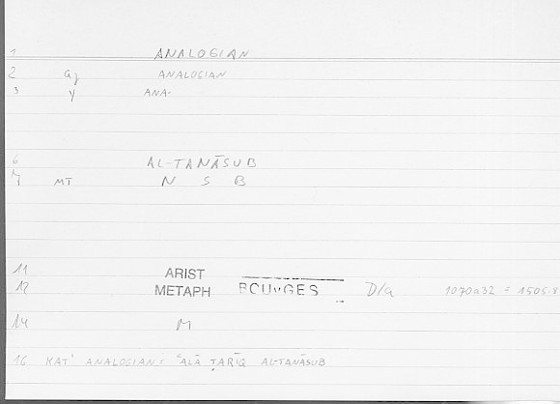 1 ANALOGIAN
2 ag ANALOGIAN
3 y ANA-
6 AL-TANĀSUB
7 MT N S B
11 ARIST
12 METAPH BOUYGES D/a 1070a32 = 1505.8
14 M
16 KAT' ANALOGIAN: ʿALĀ ṬARĪQ AL-TANĀSUB